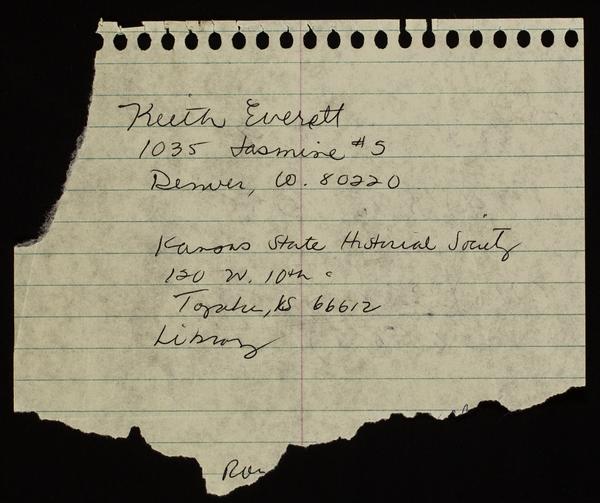 Keith Everett
1035 Jasmine #5
Denver, CO. 80220
Kansas State Historical Society
120 W. 10th
Topeka, KS 66612
Library
Ron